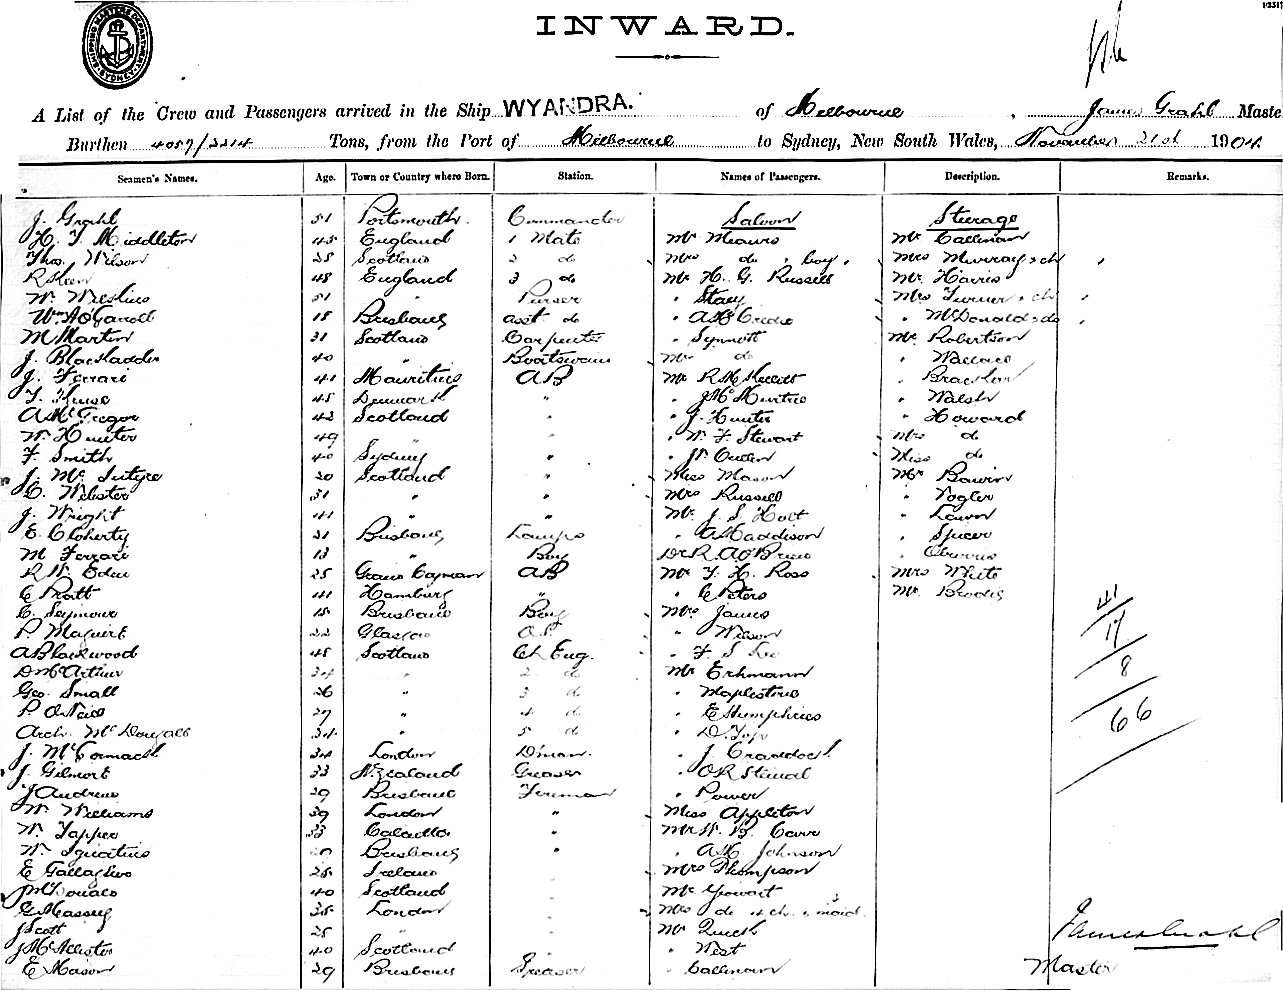 SHIPPING MASTERS DEPARTMENT SYDNEY
INWARD.
A List of the Crew and Passengers arrived in the Ship WYANDRA. of Melbourne, James Grahl Maste
Burthen 4057/2214 Tons, from the Port of Melbourne to Sydney, New South Wales, November 21st 1904
Seamen's Names. Age. Town or Country where Born. Station. Names of Passengers. Description. Remarks.
J. Grahl 51 Portsmouth. Commander Saloon Steerage
H. T. Middleton 45 England 1 Mate Mr Meares Mr Callinan
Thos. Wilson 28 Scotland 2 do Mrs do & boy. Mrs Murray & ch
R 48 England 3 do Mr H. G. Russell Mr Harris
W. 51 " Purser " Stacy Mrs Turner & ch
Wm A O'Carroll 18 Brisbane asst do " " McDonald & do
M Martin 31 Scotland Carpenter " Synnott Mr Robertson
J. Blackladder 40 " Boatswain Mrs do " Wallace
J. Ferrari 41 Mauritius AB Mr R
T. Kruse 45 Denmark " " J McMurtrie " Walsh
A McGregor 42 Scotland " " J. Hunter " Howard
W. Hunter 49 " " " W. F. Stewart Mrs do
F. Smith 40 Sydney " " Miss do
J. McIntyre 20 Scotland " Miss Mason Mr
C. Webster 31 " " Mrs Russell " Vogler
J. Wright 41 " " Mr J. S. Holt "
E. Cloherty 21 Brisbane Lamps " A Maddison " Spicer
M Ferrari 13 " Boy Dr R. A O'Brien "
R W. Eden 25 Grand Cayman AB Mr T. H. Ross Mrs White
C Pratt 41 Hamburg " " C Peters Mr Brodie
C. Seymour 18 Brisbane Boy Mrs James 41
P. Maguire 22 Glasgow AB " Wilson 17
A Blackwood 48 Scotland Ch Eng. " F. S Lee
D McArthur 34 " 2 do Mr Erhmann 8
Geo. Small 26 " 3 do " Maplestone
P. O'Neill 27 " 4 do " E Humphries 66
Arch. McDougall 34 " 5 do "
J. McCormack 34 London D'man. " J Craddock
J. Gilmore 33 N. Zealand Greaser "
J Andrews 29 Brisbane Fireman " Power
W. Williams 39 London " Miss Appleton
W. Tapper 33 Calcutta " Mr W. B. Carr
W. Ignatius 20 Brisbane " " A H. Johnson
E Gallagher 25 Ireland " Mrs Thompson
J McDonald 40 Scotland " Mr
G Massey 35 London " Mrs do & ch. & maid.
J Scott 25 " " Mr Quick James Grahl
J McAllister 40 Scotland " " West
E Mason 29 Brisbane Greaser " Callinan Master